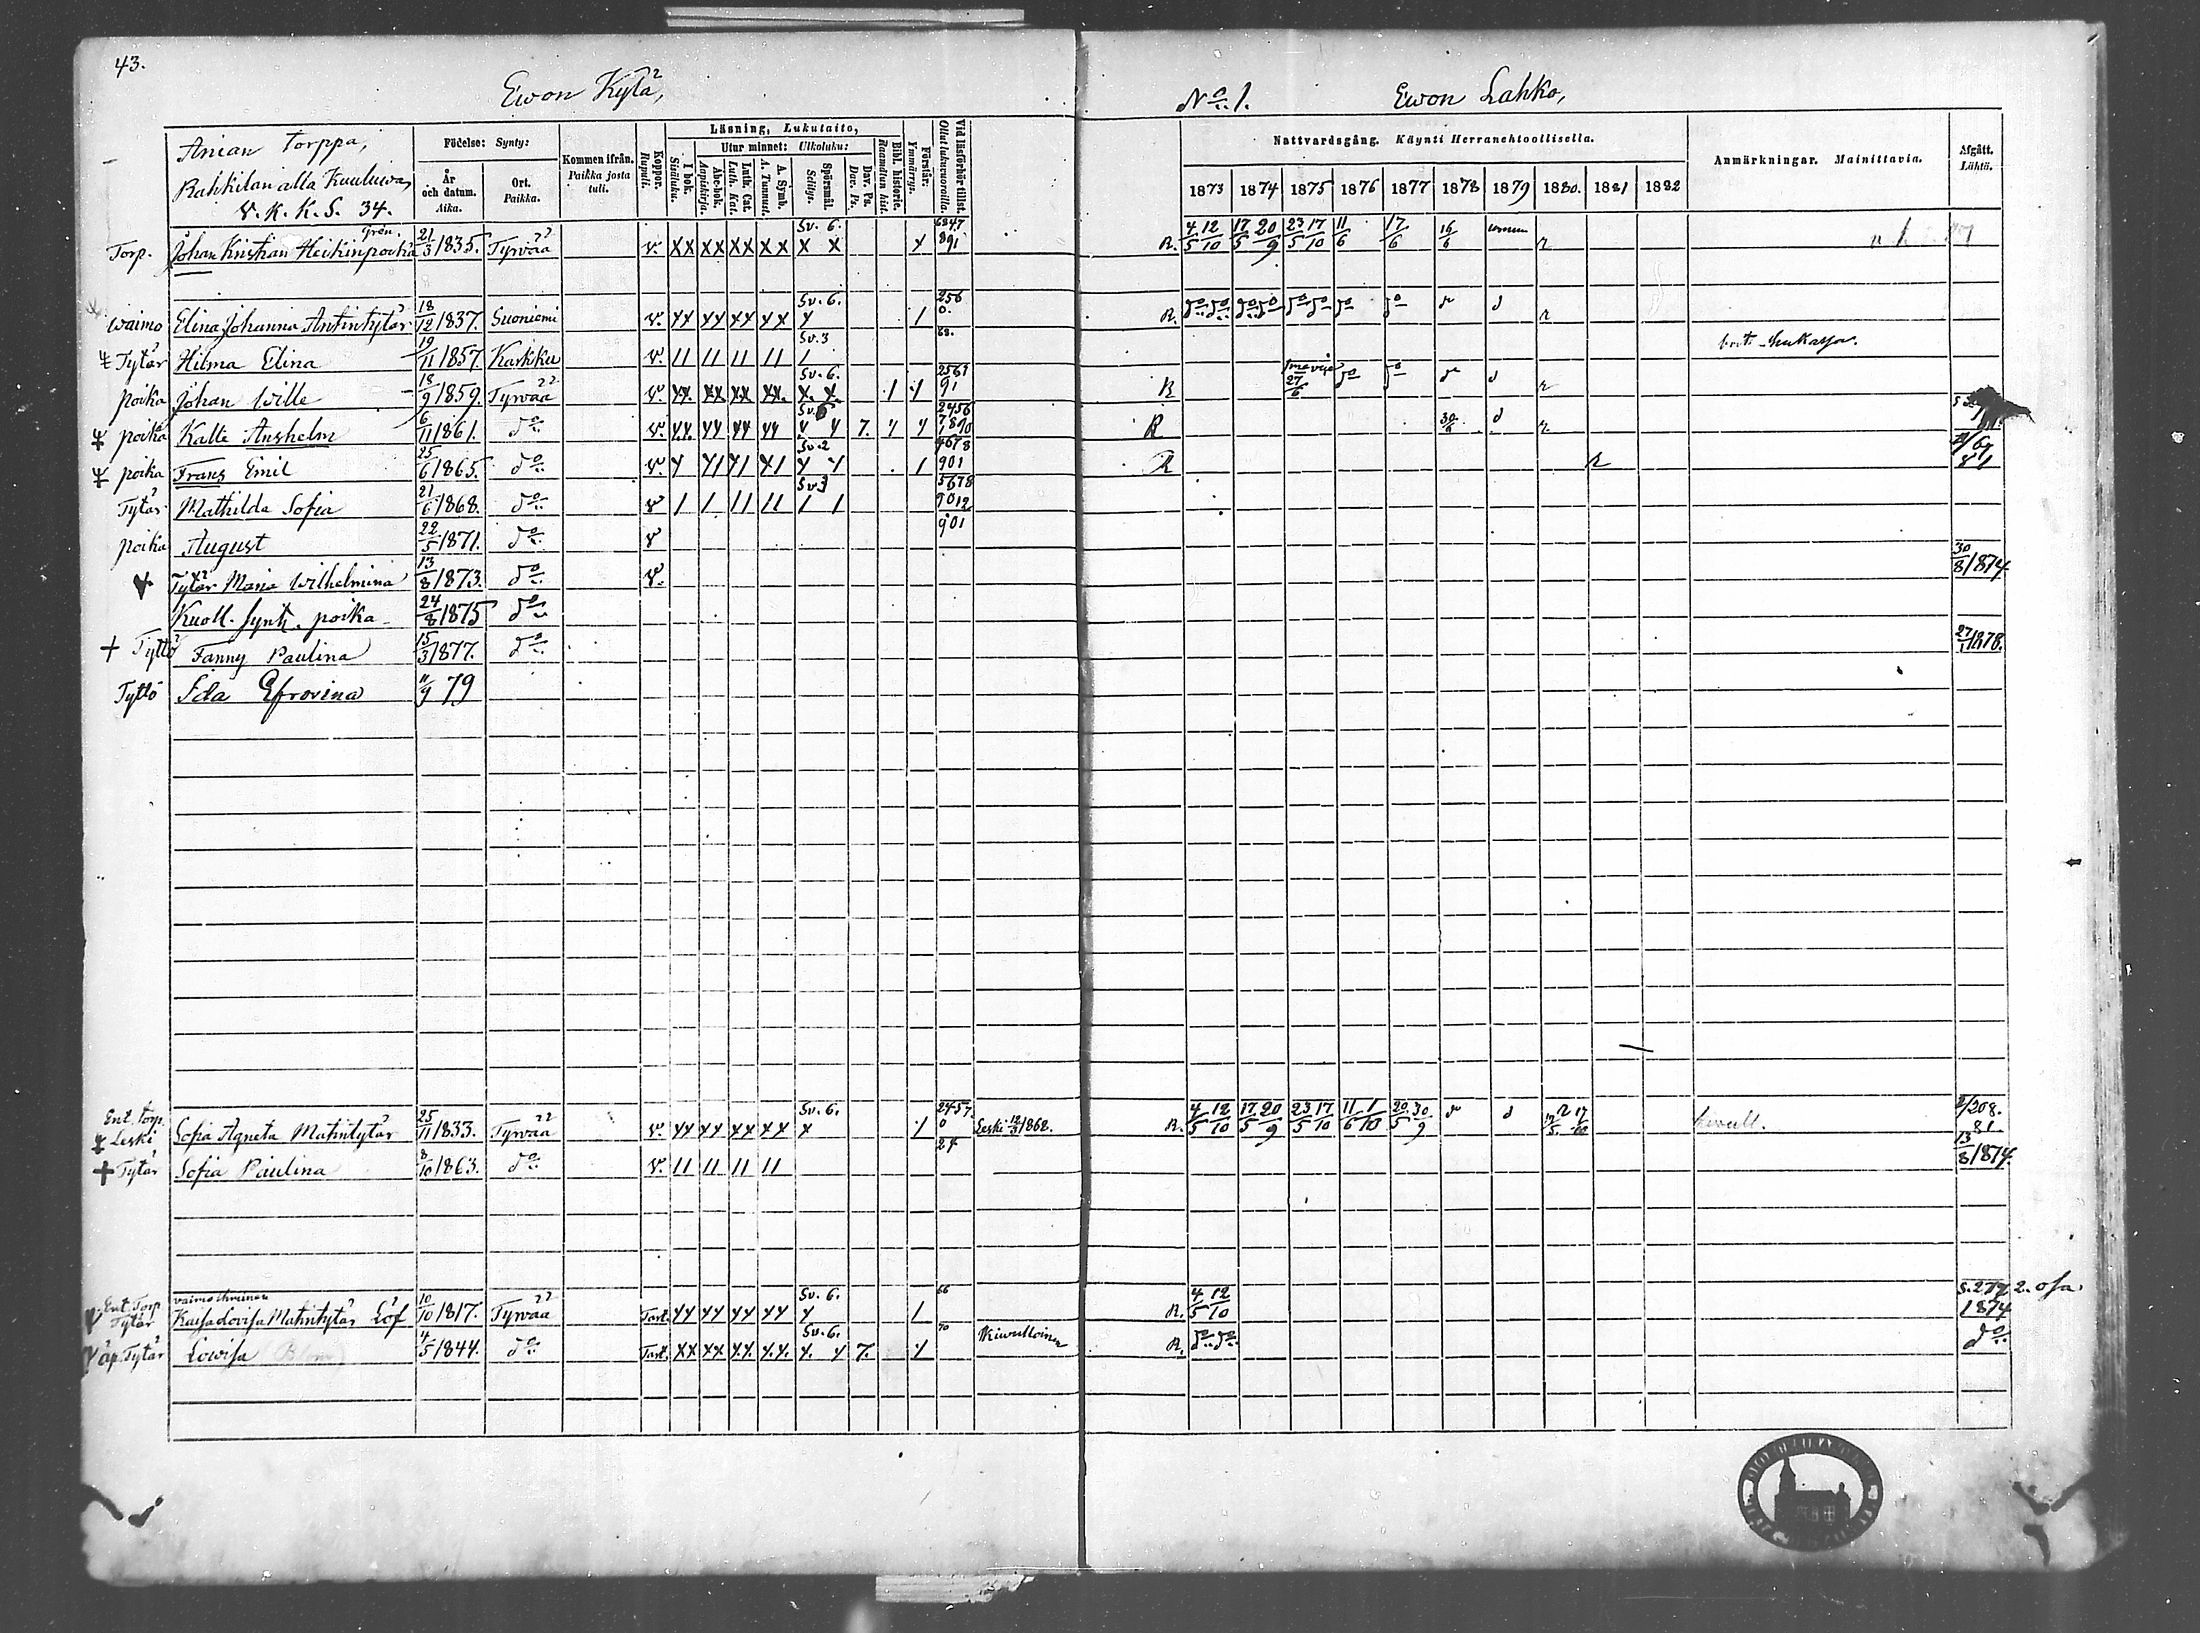 43.
Ewon Kylä,
No 1.
Ewon Lahko,
Anian torppa,
Rahkilan alla Kuuluwa
V. K. K. S. 34.
Födelse: Synty:
År och datum. Aika.
Ort. Paikka.
Kommen ifrån. Paikka josta tuli.
Koppor. Rupuli.
Läsning, Lukutaito,
I bok. Sisäluku.
Utur minnet: Ulkoluku:
Abc-bok. Aapiskirja.
Luth. Cat. Luth. Kat.
A. Symb. A. Tunnust.
Spörsmål. Selitys.
Dav. Ps. Dav. Ps.
Bibl. historie. Raamatun hist.
Förstår. Ymmärrys.
Vid läsförhör tillst. Ollut lukuvuoroilla.
Nattvardsgång. Käynti Herranehtoollisella.
1873 1874 1875 1876 1877 1878 1879 1880. 1881 1882
Anmärkningar. Mainittavia.
Afgått. Lähtö.
Torp. Johan Kristian Heikinpoika Grén. 21/3 1835. Tyrvää v. xx xx xx xx Sv. 6. x x x 6247 891 R. 4/5 12/10 17/5 20/9 23/5 17/10 11/6 17/6 16/6 r
waimo Elina Johanna Antintytär 18/12 1837. Suoniemi v. Sv. 6. 1 256 0. R. do do do do do do do do r
Tytär Hilma Elina 19/11 1857. Karkku v. 11 11 11 11 Sv. 3 1 68.
poika Johan Wille 18/9 1859. Tyrvää v. xx. xx xx xx. Sv. 6. x. x. 1 1 2569 91 R 27/6 do do r
poika Kalle Anshelm 6/11 1861. do v. Sv. 6 7. 2456 7890 R 30/6 r
poika Frans Emil 25/6 1865. do v. Sv. 2 1 4678 901 R r
Tytär Mathilda Sofia 21/6 1868. do v 1 1 11 11 Sv 3 1 1 5678 9012
poika August 22/5 1871. do v 901
Tytär Maria Wilhelmina 13/8 1873. do v. 30/8 1874
Kuoll. synt. poika 24/8 1875 do
Tyttö Fanny Paulina 15/3 1877. do 27/1 1878.
Tyttö Ida Efrovina 11/9 79
Ent. torp. Leski Sofia Agneta Matintytär 25/11 1833. Tyrvää v. Sv. 6. x 1 2457 0 Leski 12/3 1862. R. 4/5 12/10 17/5 20/9 23/5 17/10 11/6 1/10 20/5 30/9 81
Tytär Sofia Paulina 8/10 1863. do v. 11 11 11 11 24 13/8 1874.
Ent. Torp Tytär Kaisa Lovisa Matintytär Löf 10/10 1817. Tyrvää Sv. 6. 1 66 R. 4/5 12/10 S. 277 2. osa. 1874
äp. Tytär Lowisa 4/5 1844. do xx xx Sv. 6. 7. 1 70 R. do do do